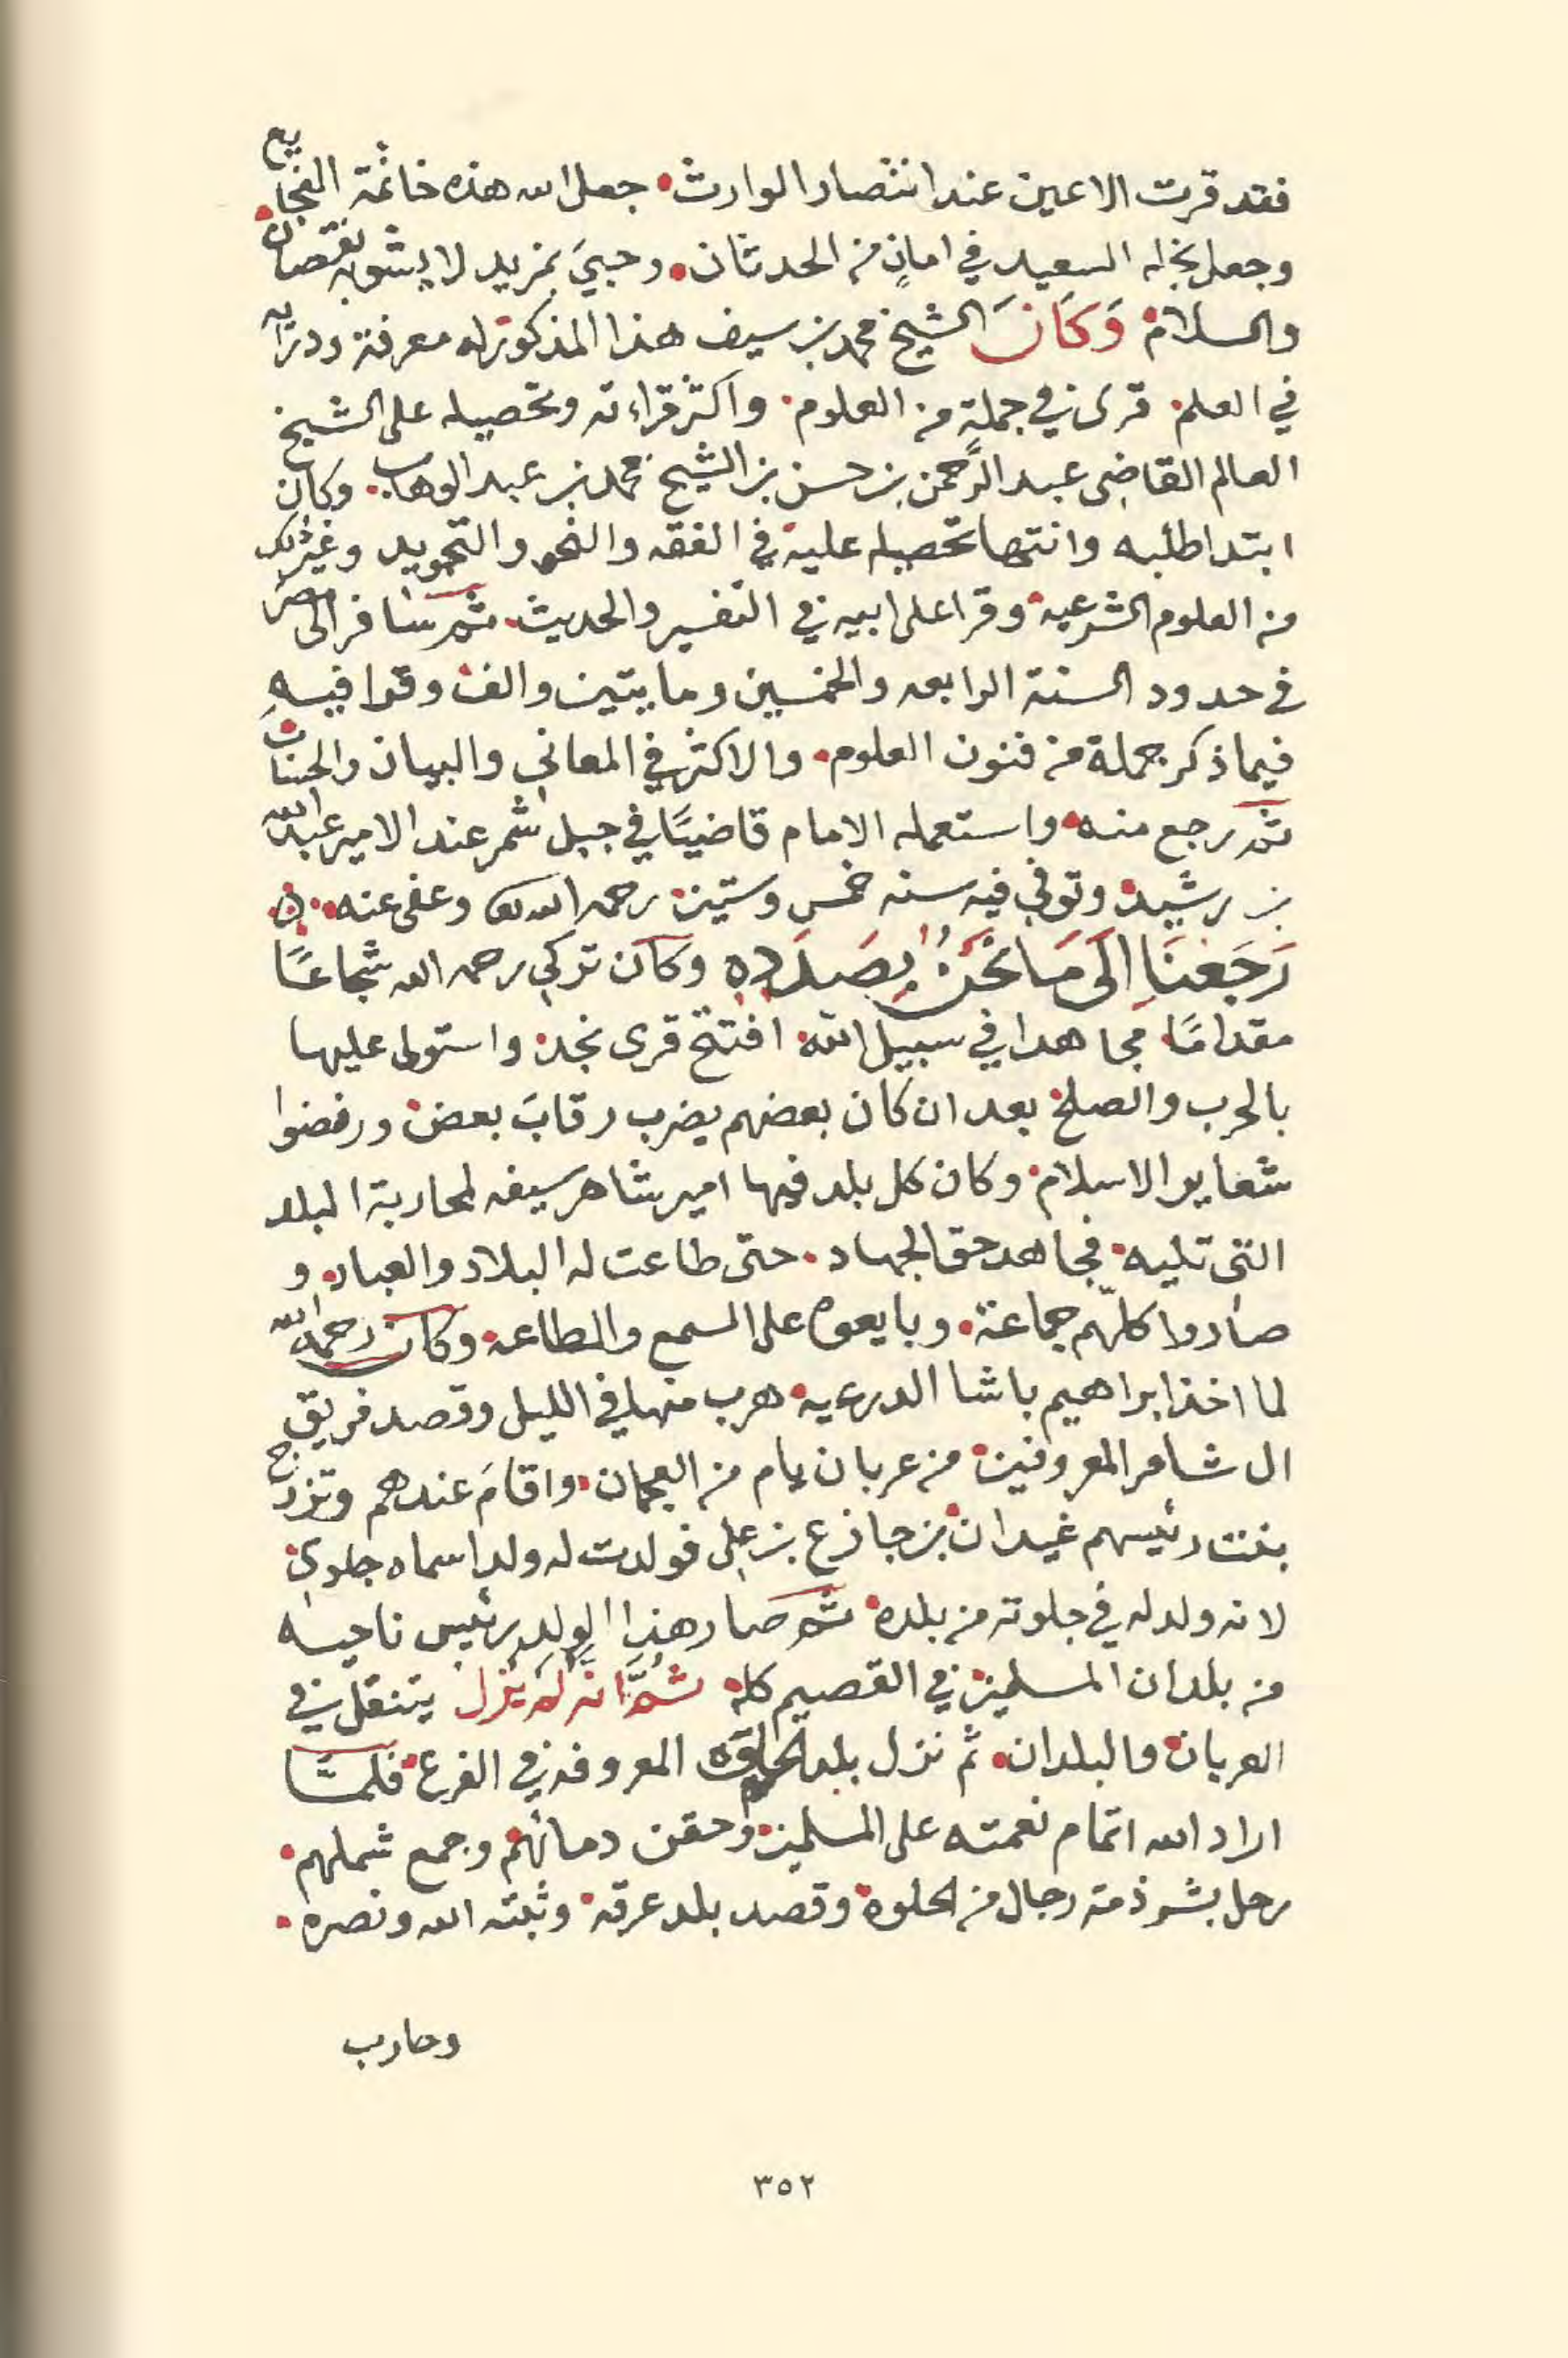 فقد قرت الاعين عند انتصار الوارث. جعل الله هذه خاتمة الفجايع.
وجعل نجله السعيد في امانٍ من الحدثان. وحبيَ بمزيد لا يشوبه نقصان
والسلام. وَكَانَ الشيخ محمد بن سيف هذا المذكور له معرفة ودرايه
في العلم. قرى في جملةٍ من العلوم. واكثر قراءته وتحصيله على الشيخ
العالم القاضي عبد الرَّحمن بن حسن بن الشيخ محمد بن عبد الوهاب. وكان
ابتدا طلبه وانتها تحصيله عليه في الفقه والنحو والتجويد وغير ذلك
من العلوم الشرعيه. وقرا على ابيه في التفسير والحديث. ثم سافر الى مصر
في حدود السنة الرابعه والخمسين ومايتين والف. وقرا فيهِ
فيما ذكر جملة من فنون العلوم. والاكثر في المعاني والبيان والحساب.
ثم رجع منه. واستعمله الامام قاضيًا في جبل شمر عند الامير عبد الله
بن رشيد. وتوفي فيه سنه خمس وستين. رحمه الله تعالى وعفى عنه. ه.
رَجَعْنَا اِلَى مَا نَحْنُ بِصَدَدِه وكان تركي رحمه الله شجاعًا
مقدامًا. مجاهدا في سبيل الله. افتتح قرى نجد. واستولى عليها
بالحرب والصلح. بعد ان كان بعضهم يضرب رقابَ بعض. ورفضوا
شعاير الاسلام. وكان كل بلد فيها امير شاهر سيفه لمحاربة البلد
التي تليه. فجاهد حق الجهاد. حتى طاعت له البلاد والعباد. و
صاروا كلّهم جماعة. وبايعوه على السمع والطاعه. وكان رحمه الله
لما اخذ ابراهيم باشا الدرعيه. هرب منها في الليل وقصد فريق
ال شامر المعروفين. من عربان يام من العجمان. واقامَ عندهم وتزوج
بنت رئيسهم غيدان بن جازع بن علي فولدت له ولدا سماه جلوي.
لانه ولد له في جلوته من بلده. ثم صار هذا الولد رئيس ناحيه
من بلدان المسلمين في القصيم كله. ثُمَّ انَّه لَمْ يَزل يتنقل في
العربان والبلدان. ثم نزل بلد الحلوه المعروفه في الفرع. فلمَّا
اراد الله اتمام نعمته على المسلمين. وحقن دمائهم وجمع شملهم.
رحل بشرذمة رجال من الحلوه. وقصد بلد عرقه. وثبته الله ونصره.
وحارب
٣٥٢